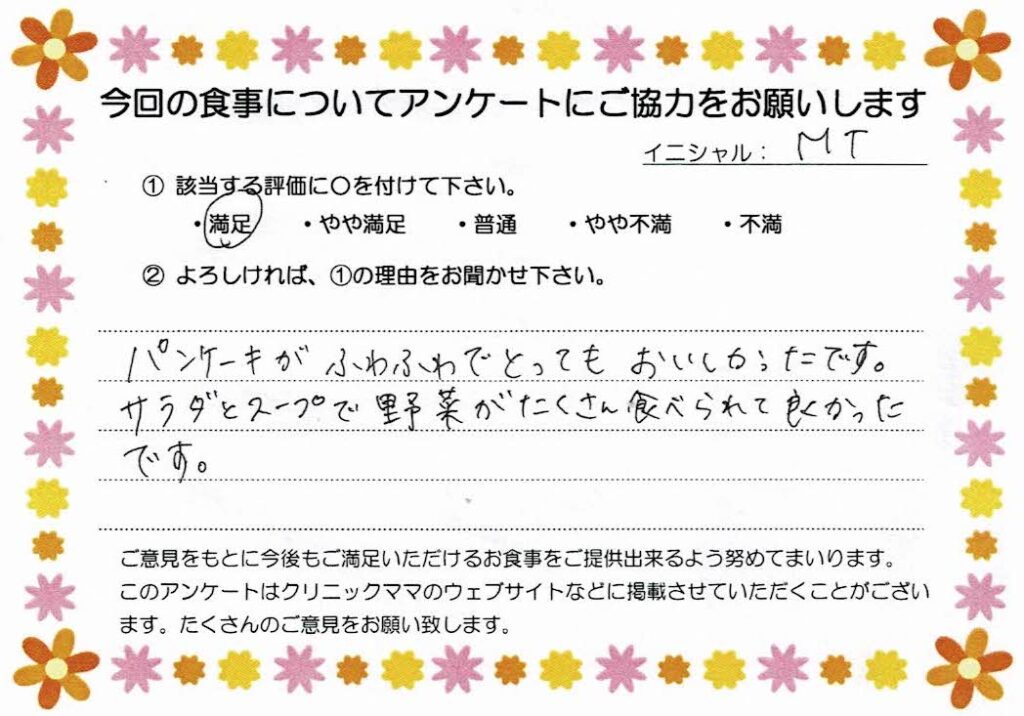 今回の食事についてアンケートにご協力をお願いします
イニシャル： MT
① 該当する評価に〇を付けて下さい。
・満足 ・やや満足 ・普通 ・やや不満 ・不満
② よろしければ、①の理由をお聞かせ下さい。
パンケーキが ふわふわでとっても おいしかったです。
サラダとスープで野菜がたくさん食べられて良かった
です。
ご意見をもとに今後もご満足いただけるお食事をご提供出来るよう努めてまいります。
このアンケートはクリニックママのウェブサイトなどに掲載させていただくことがござい
ます。たくさんのご意見をお願い致します。